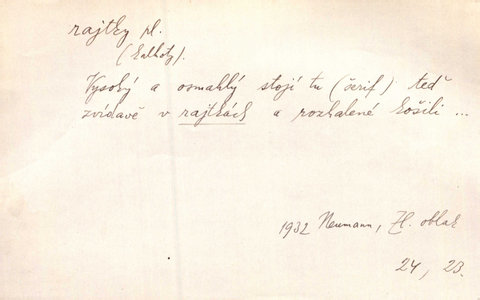 rajtky pl.
(kalhoty).
Vysoký a osmahlý stojí tu (šerif) teď
zvídavě v rajtkách a rozhalené košili ...
1932 Neumann, Zl. oblak
24, 23.